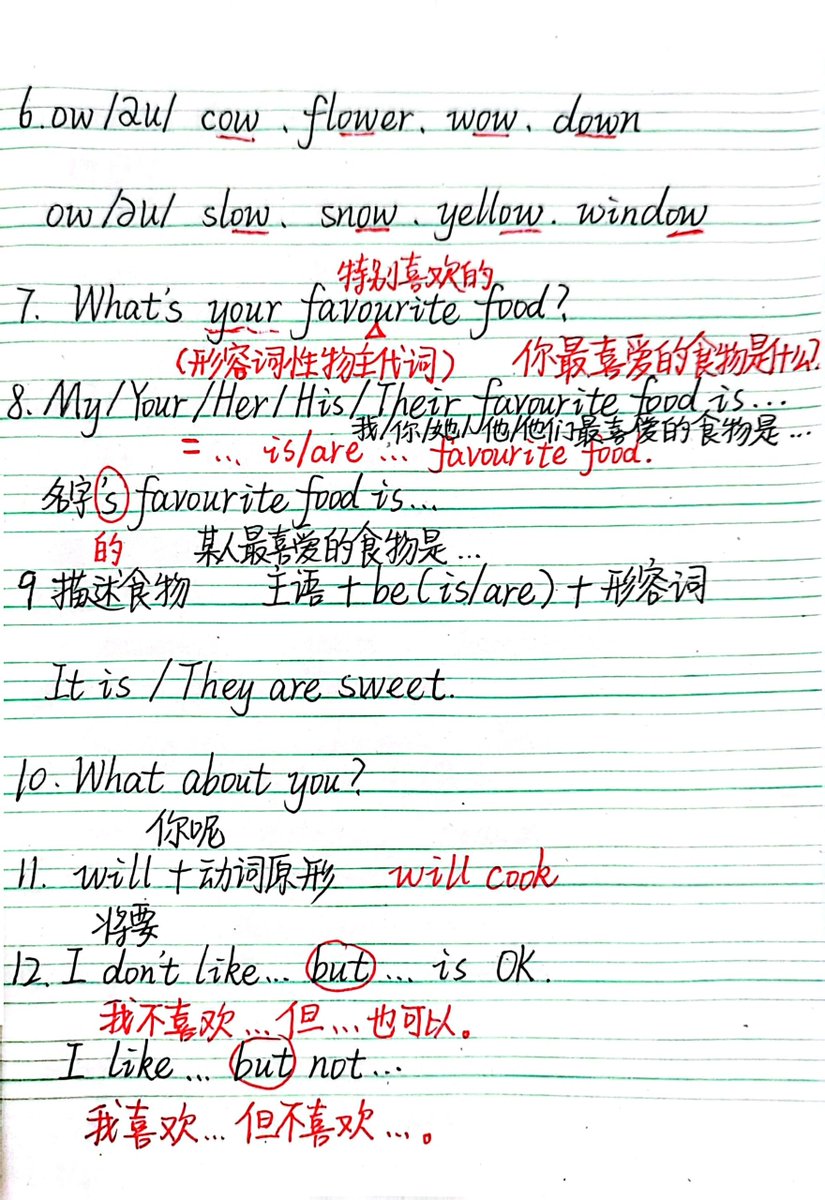 6. ow /au/ cow、flower、wow、down
ow /əu/ slow、snow、yellow、window
特别喜欢的
7. What's your favourite food?
(形容词性物主代词) 你最喜爱的食物是什么?
8. My/Your/Her/His/Their favourite food is...
我/你/她/他/他们最喜爱的食物是...
=... is/are ... favourite food.
名字's favourite food is...
的 某人最喜爱的食物是...
9 描述食物 主语+be(is/are)+形容词
It is / They are sweet.
10. What about you?
你呢
11. will+动词原形 will cook
将要
12. I don't like... but ... is OK.
我不喜欢...但...也可以。
I like... but not...
我喜欢...但不喜欢...。